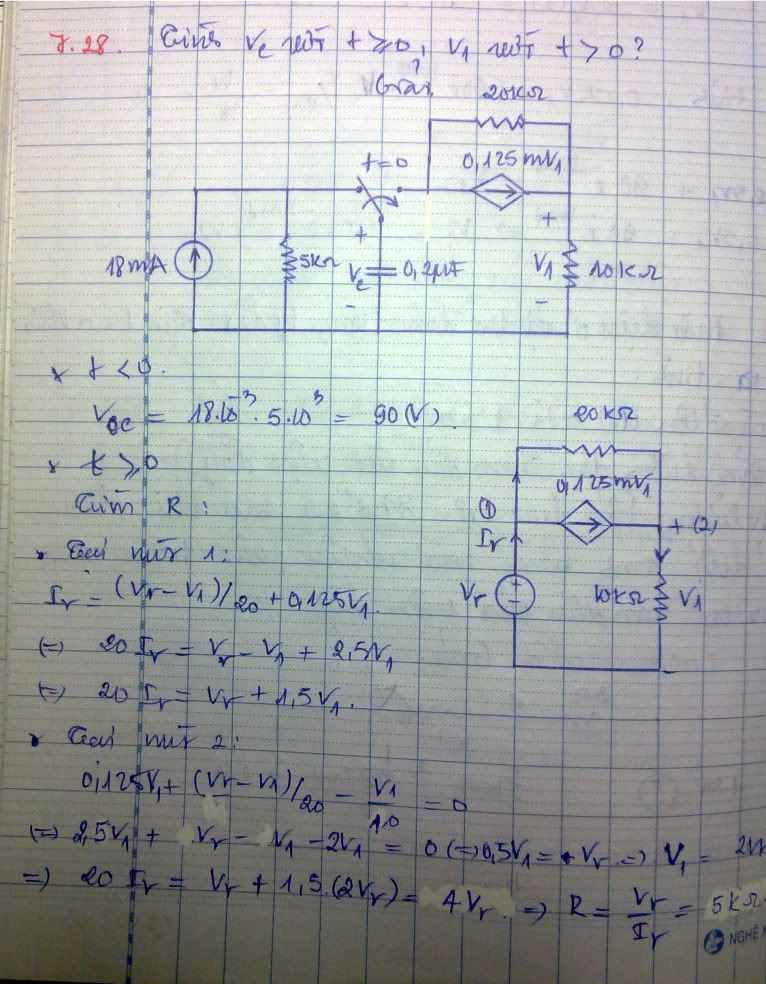 7.28. Tính Vc với t ≥ 0, V1 với t > 0?
Giải
20KΩ
t=0
0,125mV1
+
+
18mA
5KΩ
Vc
0,2μF
V1
10KΩ
-
-
* t < 0.
Voc = 18.10⁻³. 5.10³ = 90 (V).
20KΩ
* t ≥ 0
0,125mV1
Tìm R :
①
+ (2)
Ir
• Tại nút 1:
Vr
10KΩ
V1
Ir = (Vr-V1)/20 + 0,125V1.
(=) 20 Ir = Vr - V1 + 2,5V1
(=) 20 Ir = Vr + 1,5V1.
• Tại nút 2:
0,125V1 + (Vr-V1)/20 - V1/10 = 0
(=) 2,5V1 + Vr - V1 - 2V1 = 0 (=) 0,5V1 = Vr =) V1 = 2Vr
=) 20 Ir = Vr + 1,5.(2Vr) = 4Vr =) R = Vr/Ir = 5KΩ